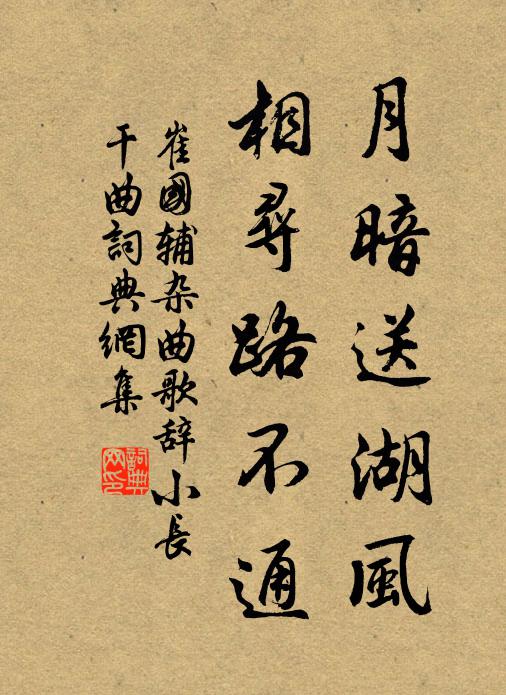 月暗送湖風
相尋路不通
崔國辅杂曲歌辞小長
干曲詞典網集
詞典网印